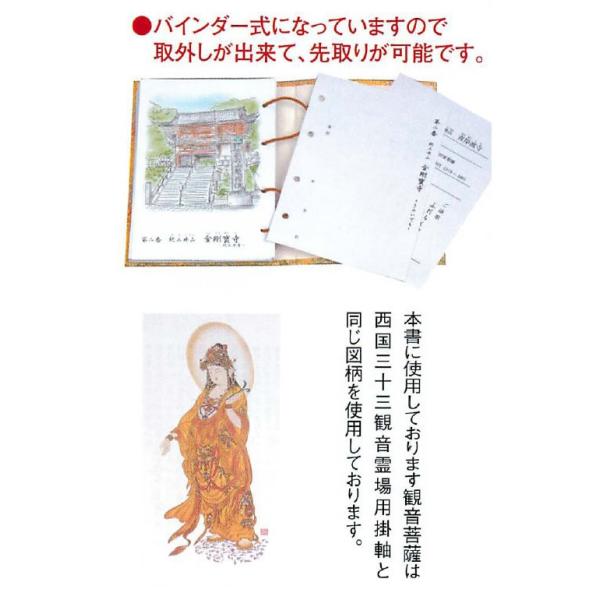 ●バインダー式になっていますので
取外しが出来て、先取りが可能です。
第二番 紀三井山 金剛寳寺
本書に使用しております観音菩薩は
西国三十三観音霊場用掛軸と
同じ図柄を使用しております。